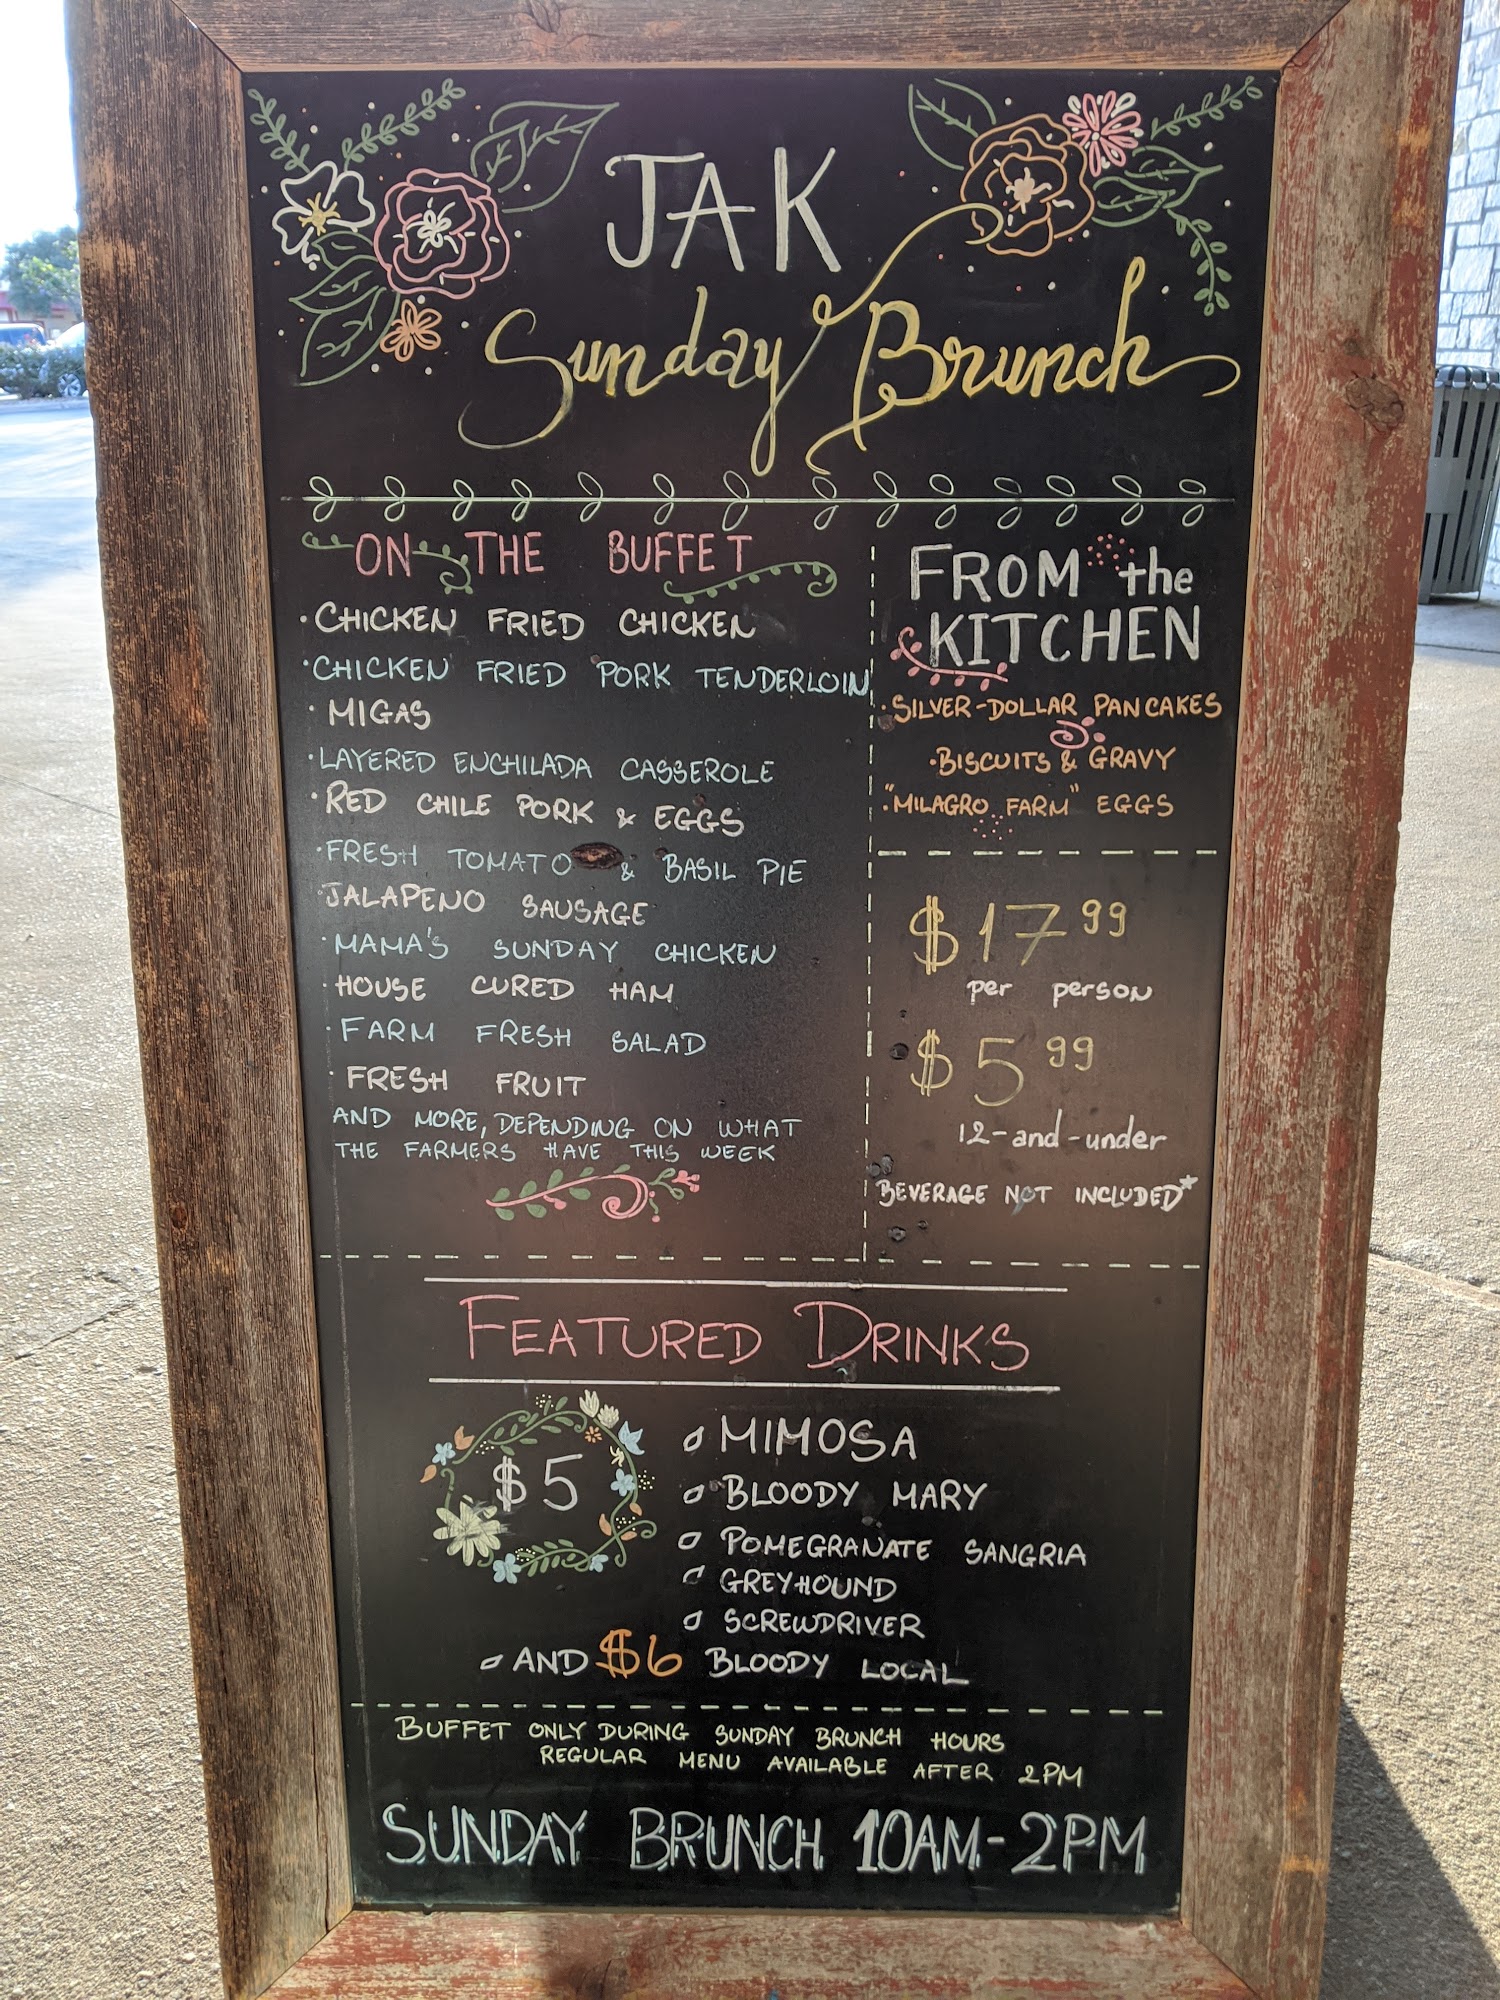 JAK
Sunday Brunch
ON THE BUFFET
· CHICKEN FRIED CHICKEN
· CHICKEN FRIED PORK TENDERLOIN
· MIGAS
· LAYERED ENCHILADA CASSEROLE
· RED CHILE PORK & EGGS
· FRESH TOMATO & BASIL PIE
· JALAPENO SAUSAGE
· MAMA'S SUNDAY CHICKEN
· HOUSE CURED HAM
· FARM FRESH SALAD
· FRESH FRUIT
AND MORE, DEPENDING ON WHAT
THE FARMERS HAVE THIS WEEK
FROM the
KITCHEN
· SILVER-DOLLAR PANCAKES
· BISCUITS & GRAVY
· "MILAGRO FARM" EGGS
$17.99
per person
$5.99
12-and-under
BEVERAGE NOT INCLUDED*
FEATURED DRINKS
$5
MIMOSA
BLOODY MARY
POMEGRANATE SANGRIA
GREYHOUND
SCREWDRIVER
AND $6 BLOODY LOCAL
BUFFET ONLY DURING SUNDAY BRUNCH HOURS
REGULAR MENU AVAILABLE AFTER 2PM
SUNDAY BRUNCH 10AM-2PM